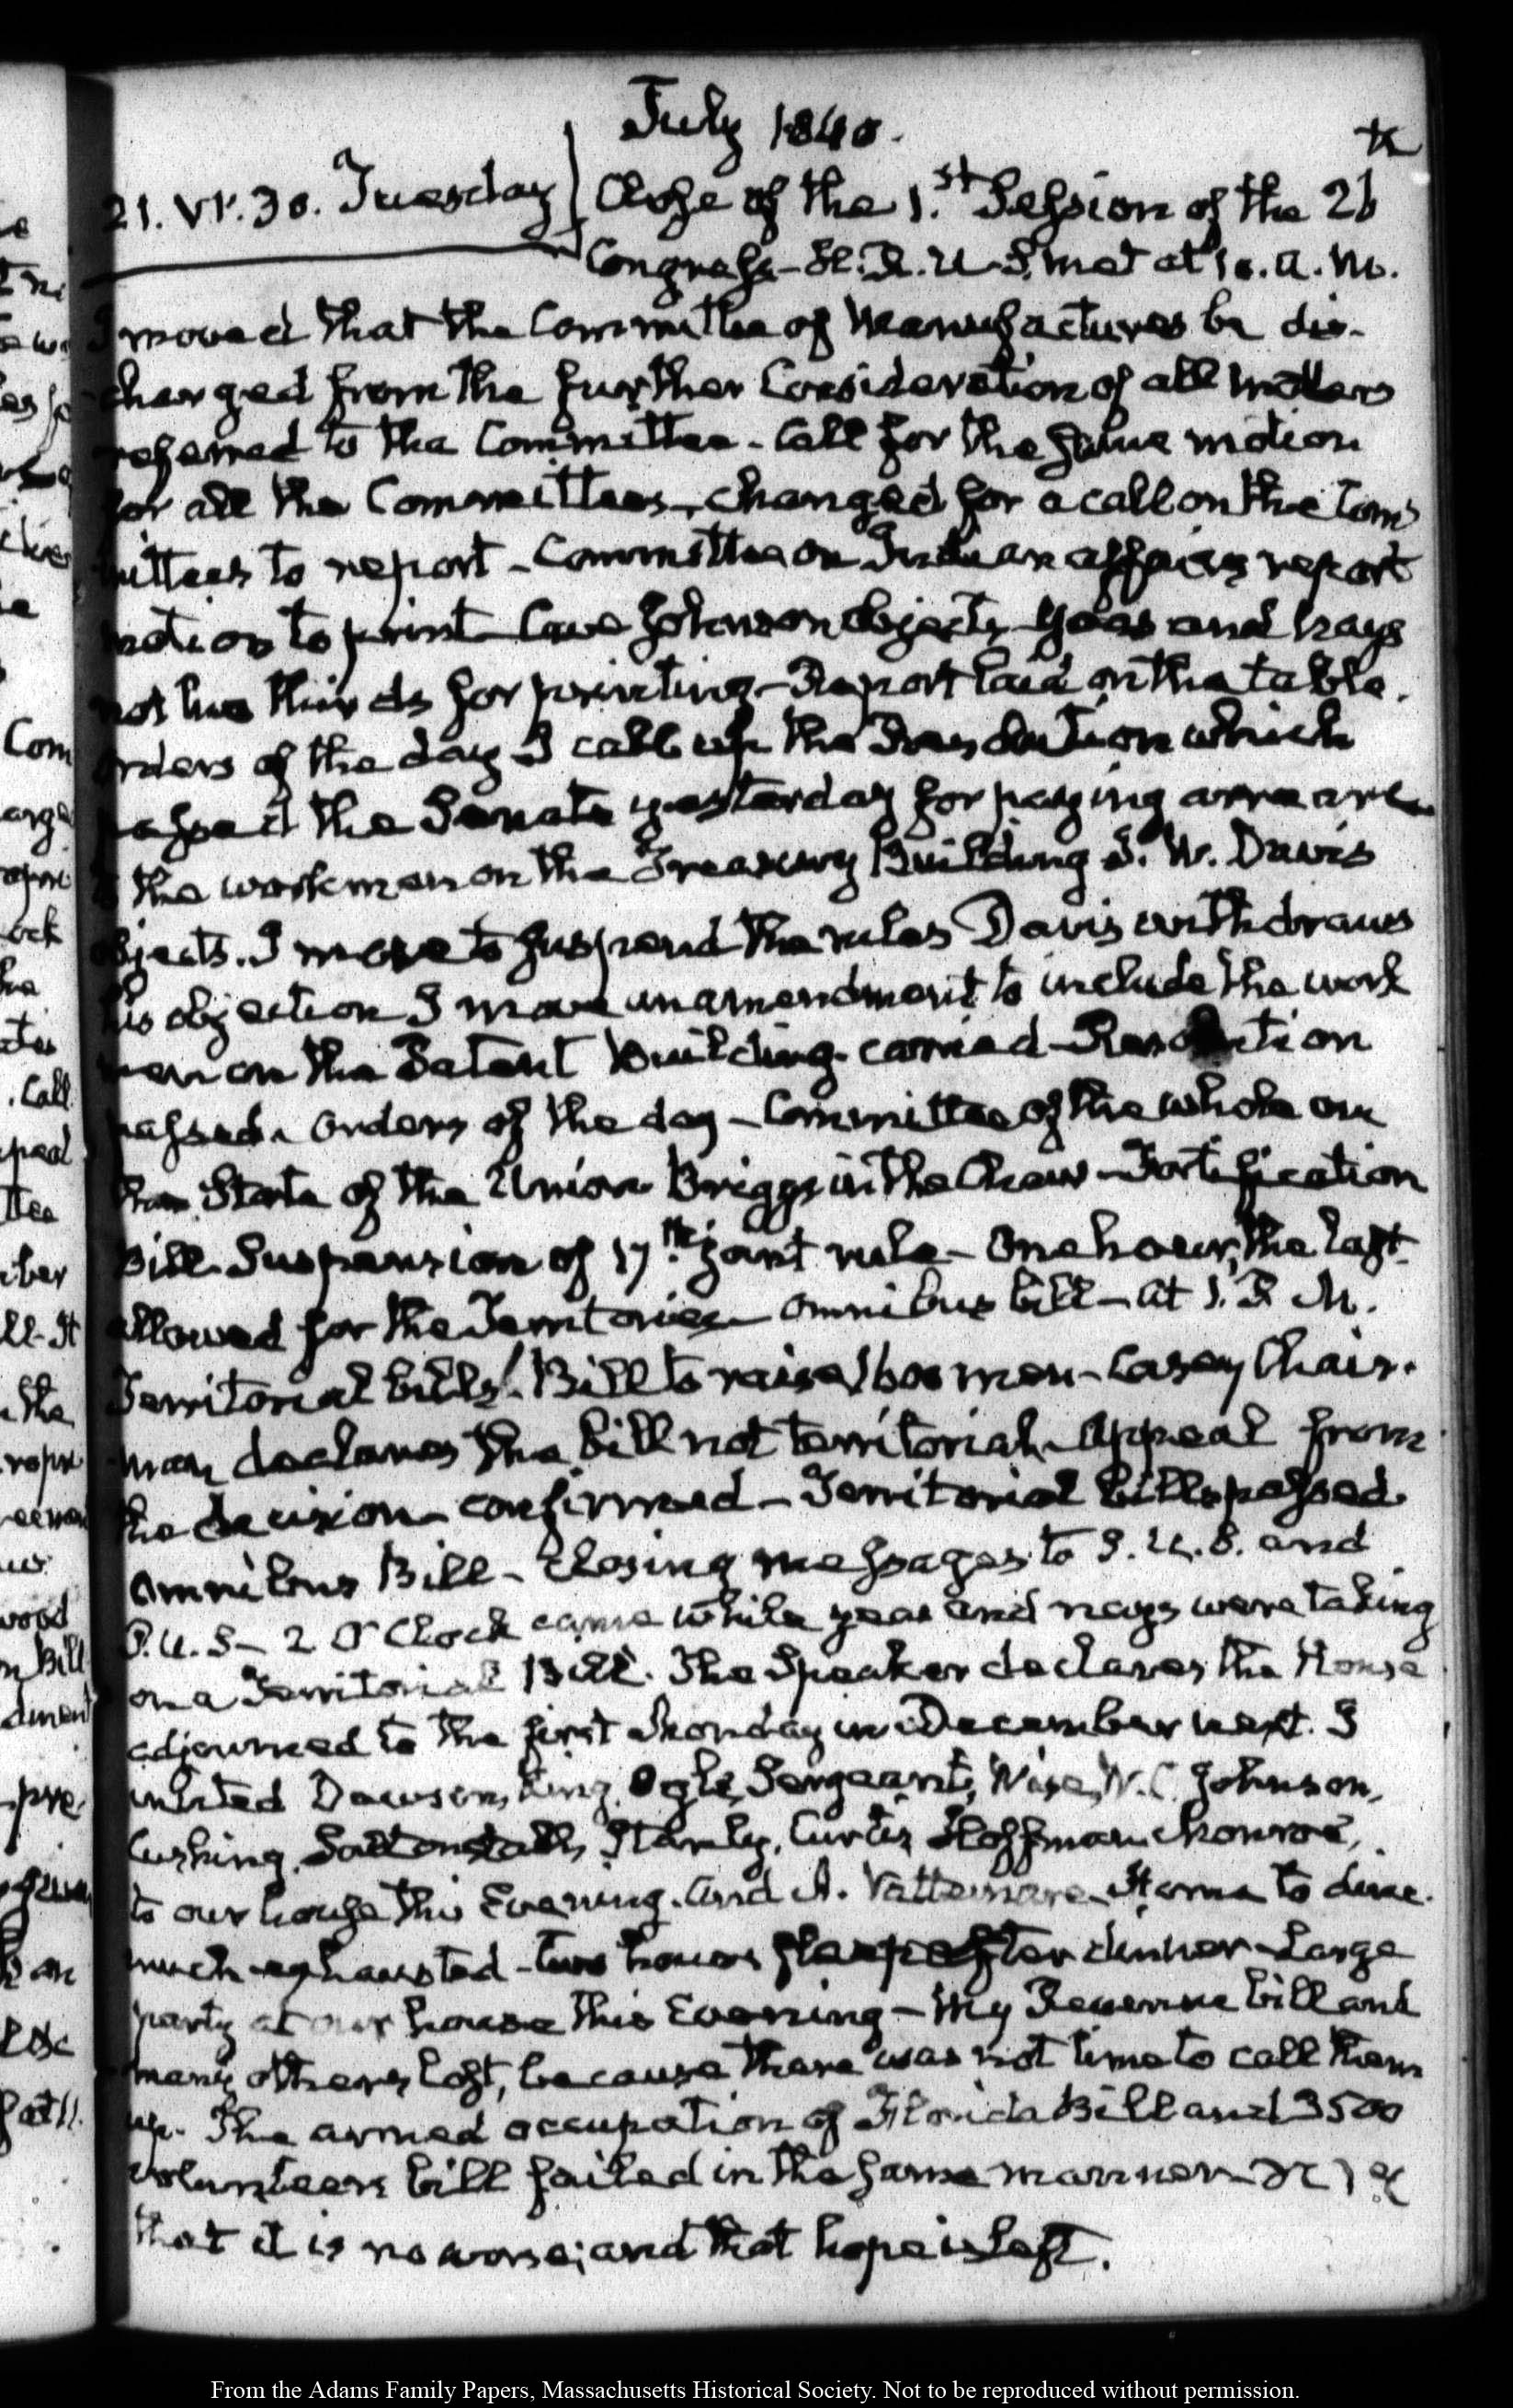 July 1840.
21. VI. 30. Tuesday Close of the 1.st Session of the 26
Congress - H. R. U.S. met at 10. A. M.
I moved that the Committee of Manufactures be dis-
charged from the further Consideration of all matters
referred to the Committee - Call for the same motion
for all the Committees, changed for a call on the Com-
mittees to report - Committee on Indian affairs report
motion to print - Cave Johnson objects - Yeas and Nays
not two thirds for printing - Report laid on the table.
Orders of the day I call up the Resolution which
passed the Senate yesterday for paying arrears
to the workmen on the Treasury Building J. W. Davis
objects. I move to suspend the rules Davis withdraws
his objection I move an amendment to include the work
men on the Patent Building - carried - Resolution
passed. Orders of the day - Committee of the whole on
the State of the Union Briggs in the Chair - Fortification
Bill. Suspension of 17.th joint rule - One hour, the last
allowed for the Territories - Omnibus bill - at 1. P. M.
Territorial bills. Bill to raise 1600 men - Casey Chair.
man declares the bill not territorial - Appeal from
the decision - confirmed - Territorial bills passed.
Omnibus Bill - Closing messages to S. U. S. and
P. U. S - 2 O'Clock came while yeas and nays were taking
on a Territorial Bill. The Speaker declares the House
adjourned to the first Monday in December next. I
invited Dawson, King, Ogle, Sergeant, Wise, W. C. Johnson,
Cushing, Saltonstall, Stanly, Curtis Hoffman Monroe,
to our house this Evening. And A. Vattemare. Home to dine.
much exhausted - two hours sleep after dinner - Large
party at our house this Evening - My Revenue bill and
many others lost, because there was not time to call them
up. The armed occupation of Florida Bill and
volunteers bill failed in the same manner
that it is no worse; and that hope is left.
From the Adams Family Papers, Massachusetts Historical Society. Not to be reproduced without permission.